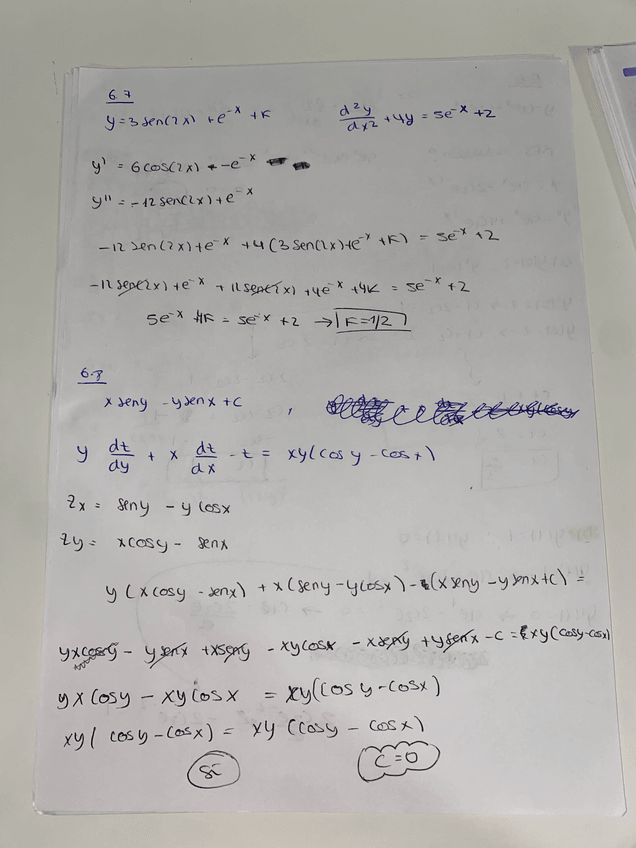 6.7
y=3sen(2x) +e^-x +K d²y/dx² +4y = 5e^-x +2
y' = 6cos(2x) -e^-x
y'' = -12sen(2x)+e^-x
-12sen(2x)+e^-x +4(3sen(2x)+e^-x +K) = 5e^-x +2
-12sen(2x)+e^-x +12sen(2x) +4e^-x +4K = 5e^-x +2
5e^-x +4K = 5e^-x +2 → K=1/2
6.8
x seny -ysenx +C ,
y dt/dy + x dt/dx - t = xy(cosy-cosx)
Zx = seny - y cosx
Zy = xcosy - senx
y(xcosy -senx) + x(seny-ycosx) - (xseny -ysenx+C) =
yxcosy - ysenx +xseny - xycosx - xseny +ysenx -C = xy(cosy-cosx)
yx cosy - xycosx = xy(cosy-cosx)
xy(cosy-cosx) = xy (cosy - cosx)
Si C=0